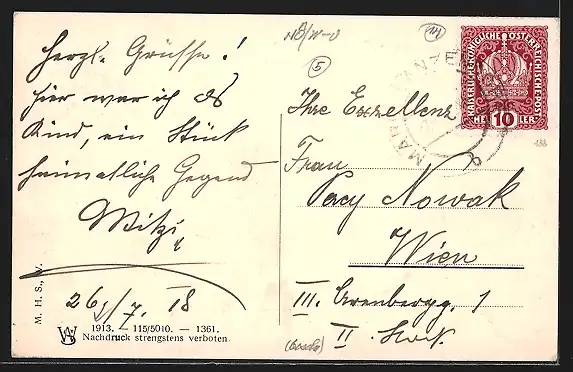 Herzl. Grüsse!
hier war ich als
Kind, ein Stück
heimatliche Gegend
Mitzi
26/7. 18
M. H. S., W.
1913. – 115/5010. – 1361.
Nachdruck strengstens verboten.
NB/W-V
14
5
KAISERLICH KÖNIGLICHE ÖSTERREICHISCHE POST
HELLER
10
Ihre Exzellenz
Frau
Nowak
Wien
III. Arenbergg. 1
II. Stock.